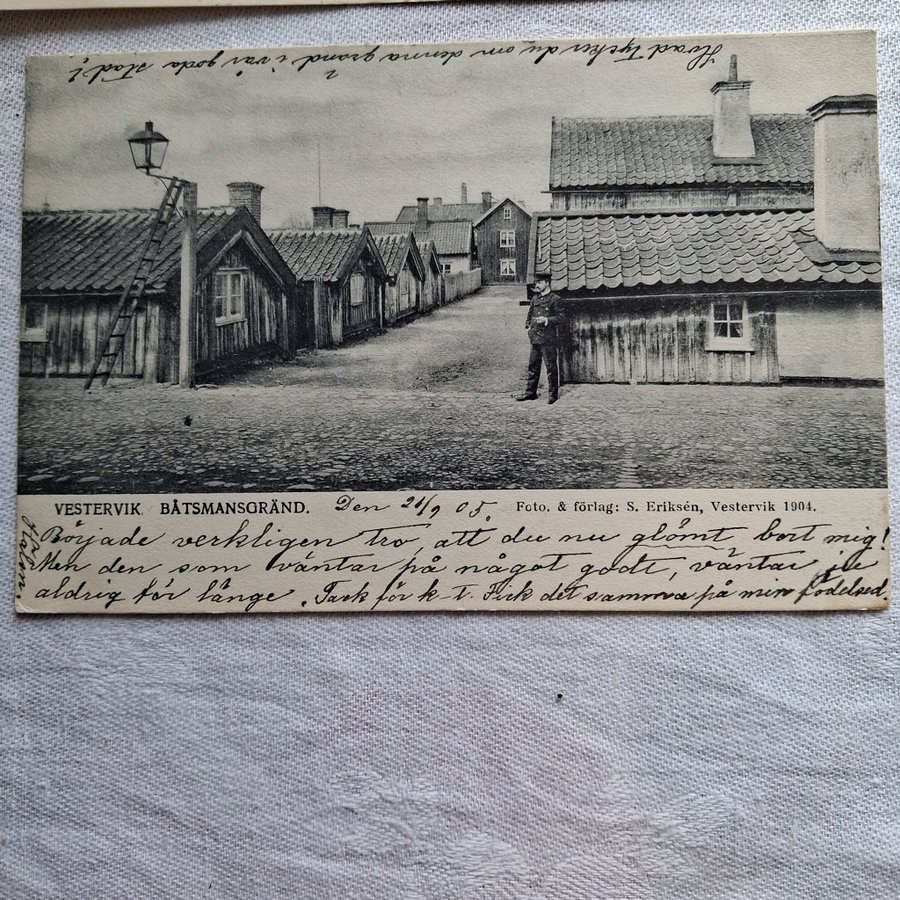 Hvad tycker du om denna gränd i vår goda stad?!
VESTERVIK. BÅTSMANSGRÄND. Den 21/9 05. Foto. & förlag: S. Eriksén, Vestervik 1904.
Började verkligen tro, att du nu glömt bort mig!
Men den som väntar på något godt, väntar ju
aldrig för länge. Tack för k-t. Fick det samma på min födelsed.